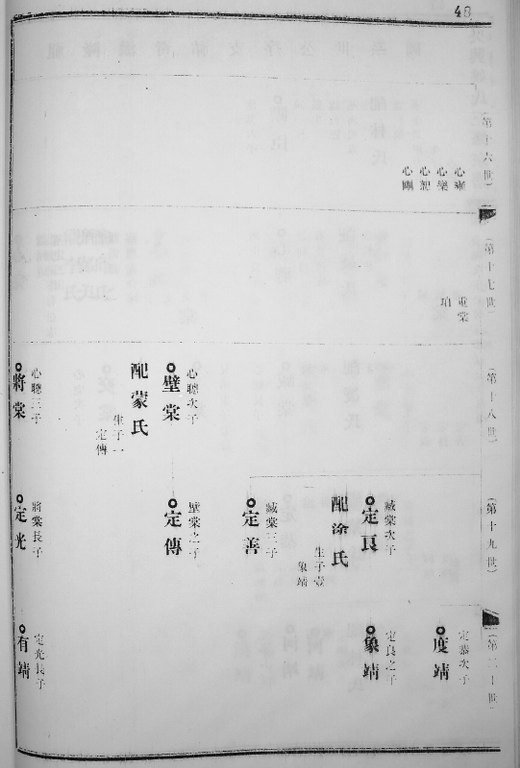 48
(第十六世)
心寵
心樂
心親
心剛
(第十七世)
垂棠
珀
(第十八世)
心聰次子
璧棠
配蒙氏
生子一
定傳
心聰三子
將棠
(第十九世)
臧棠次子
定良
配涂氏
生子壹
象靖
臧棠三子
定善
璧棠之子
定傳
將棠長子
定光
(第二十世)
定慕次子
度靖
定良之子
象靖
定光長子
有靖